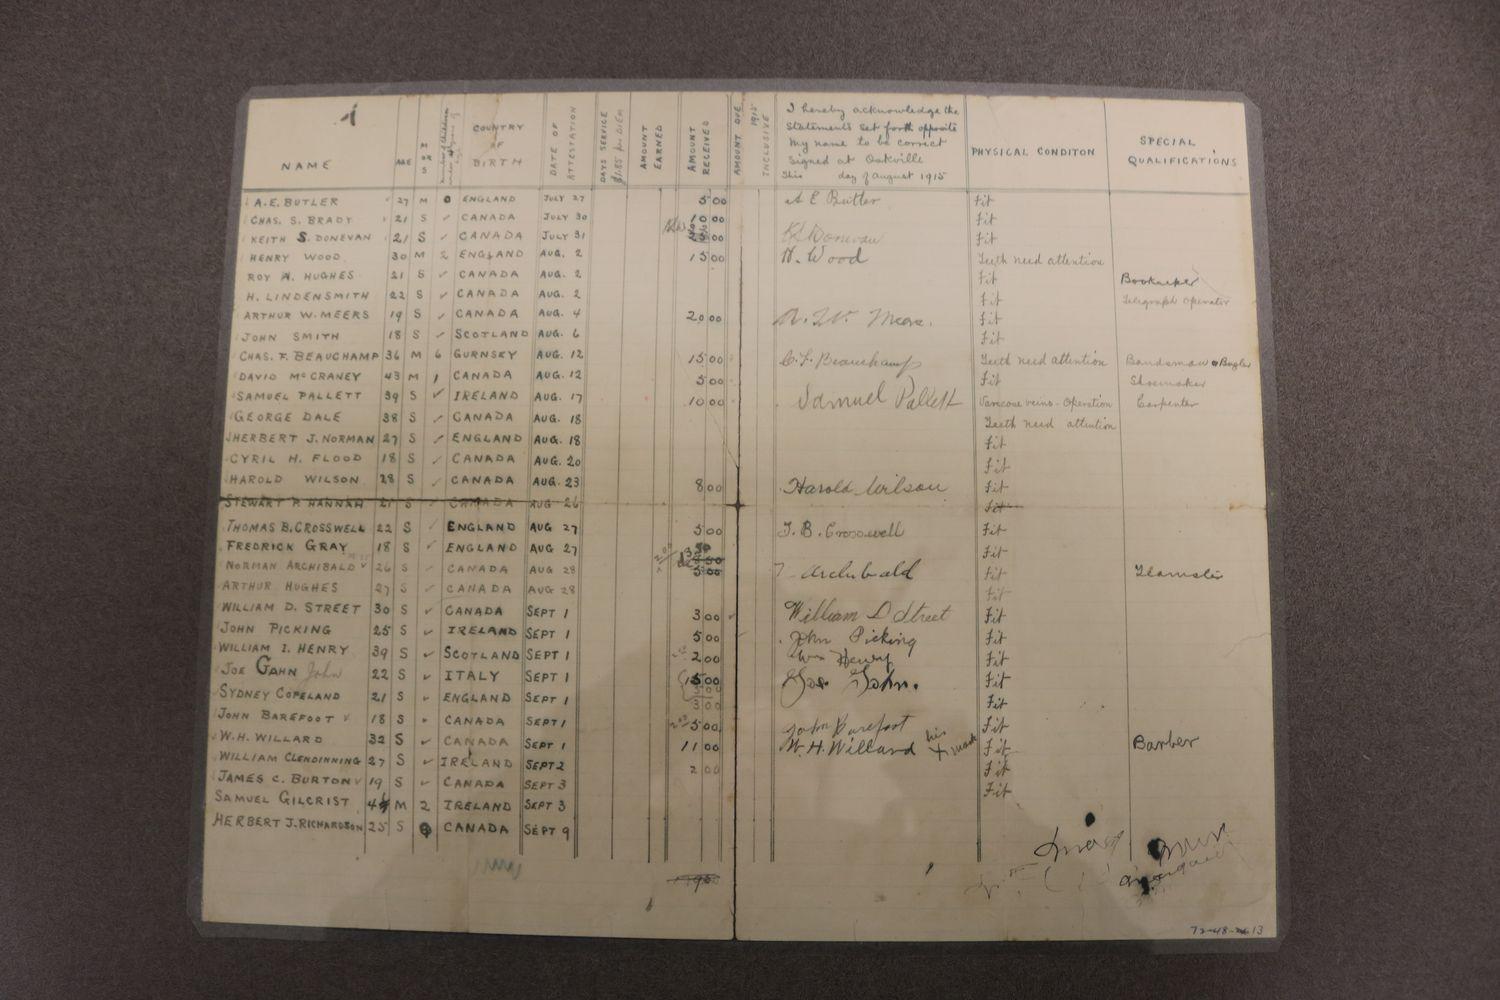 NAME AGE M OR S COUNTRY OF BIRTH DATE OF ATTESTATION DAYS SERVICE $1.85 per DIEM AMOUNT EARNED AMOUNT RECEIVED AMOUNT DUE 1915 INCLUSIVE I hereby acknowledge the statements set forth opposite my name to be correct signed at Oakville this day of August 1915 PHYSICAL CONDITON SPECIAL QUALIFICATIONS
A.E. BUTLER 27 M 0 ENGLAND JULY 27 5 00 A E Butler Fit
CHAS. S. BRADY 21 S CANADA JULY 30 10 00 Fit
KEITH S. DONEVAN 21 S CANADA JULY 31 00 KS Donevan Fit
HENRY WOOD 30 M 2 ENGLAND AUG. 2 15 00 H. Wood Teeth need attention
ROY A. HUGHES 21 S CANADA AUG. 2 Fit Bookkeeper
H. LINDENSMITH 22 S CANADA AUG. 2 Fit Telegraph Operator
ARTHUR W. MEERS 19 S CANADA AUG. 4 20 00 A. W. Meers. Fit
JOHN SMITH 18 S SCOTLAND AUG. 6 Fit
CHAS. F. BEAUCHAMP 36 M 6 GURNSEY AUG. 12 15 00 C. F. Beauchamp Teeth need attention Bandsman & Bugler
DAVID McCRANEY 43 M 1 CANADA AUG. 12 5 00 Fit Shoemaker
SAMUEL PALLETT 39 S IRELAND AUG. 17 10 00 Samuel Pallett Varicose veins - Operation Carpenter
GEORGE DALE 38 S CANADA AUG. 18 Teeth need attention
HERBERT J. NORMAN 27 S ENGLAND AUG. 18 Fit
CYRIL H. FLOOD 18 S CANADA AUG. 20 Fit
HAROLD WILSON 28 S CANADA AUG. 23 8 00 Harold Wilson Fit
STEWART P. HANNAH 21 S CANADA AUG 26 Fit
THOMAS B. CROSSWELL 22 S ENGLAND AUG 27 5 00 T. B. Crosswell Fit
FREDRICK GRAY 18 S ENGLAND AUG 27 Fit
NORMAN ARCHIBALD 26 S CANADA AUG 28 5 00 Archibald Fit Teamster
ARTHUR HUGHES 27 S CANADA AUG 28 Fit
WILLIAM D. STREET 30 S CANADA SEPT 1 3 00 William D Street Fit
JOHN PICKING 25 S IRELAND SEPT 1 5 00 John Picking Fit
WILLIAM I. HENRY 39 S SCOTLAND SEPT 1 2 00 Wm Henry Fit
JOE GAHN John 22 S ITALY SEPT 1 15 00 Gahn. Fit
SYDNEY COPELAND 21 S ENGLAND SEPT 1 3 00 Fit
JOHN BAREFOOT 18 S CANADA SEPT 1 5 00 John Barefoot Fit
W.H. WILLARD 32 S CANADA SEPT 1 11 00 W. H. Willard his X mark Fit Barber
WILLIAM CLENDINNING 27 S IRELAND SEPT 2 2 00 Fit
JAMES C. BURTON 19 S CANADA SEPT 3 Fit
SAMUEL GILCRIST M 2 IRELAND SEPT 3
HERBERT J. RICHARDSON 25 S 0 CANADA SEPT 9